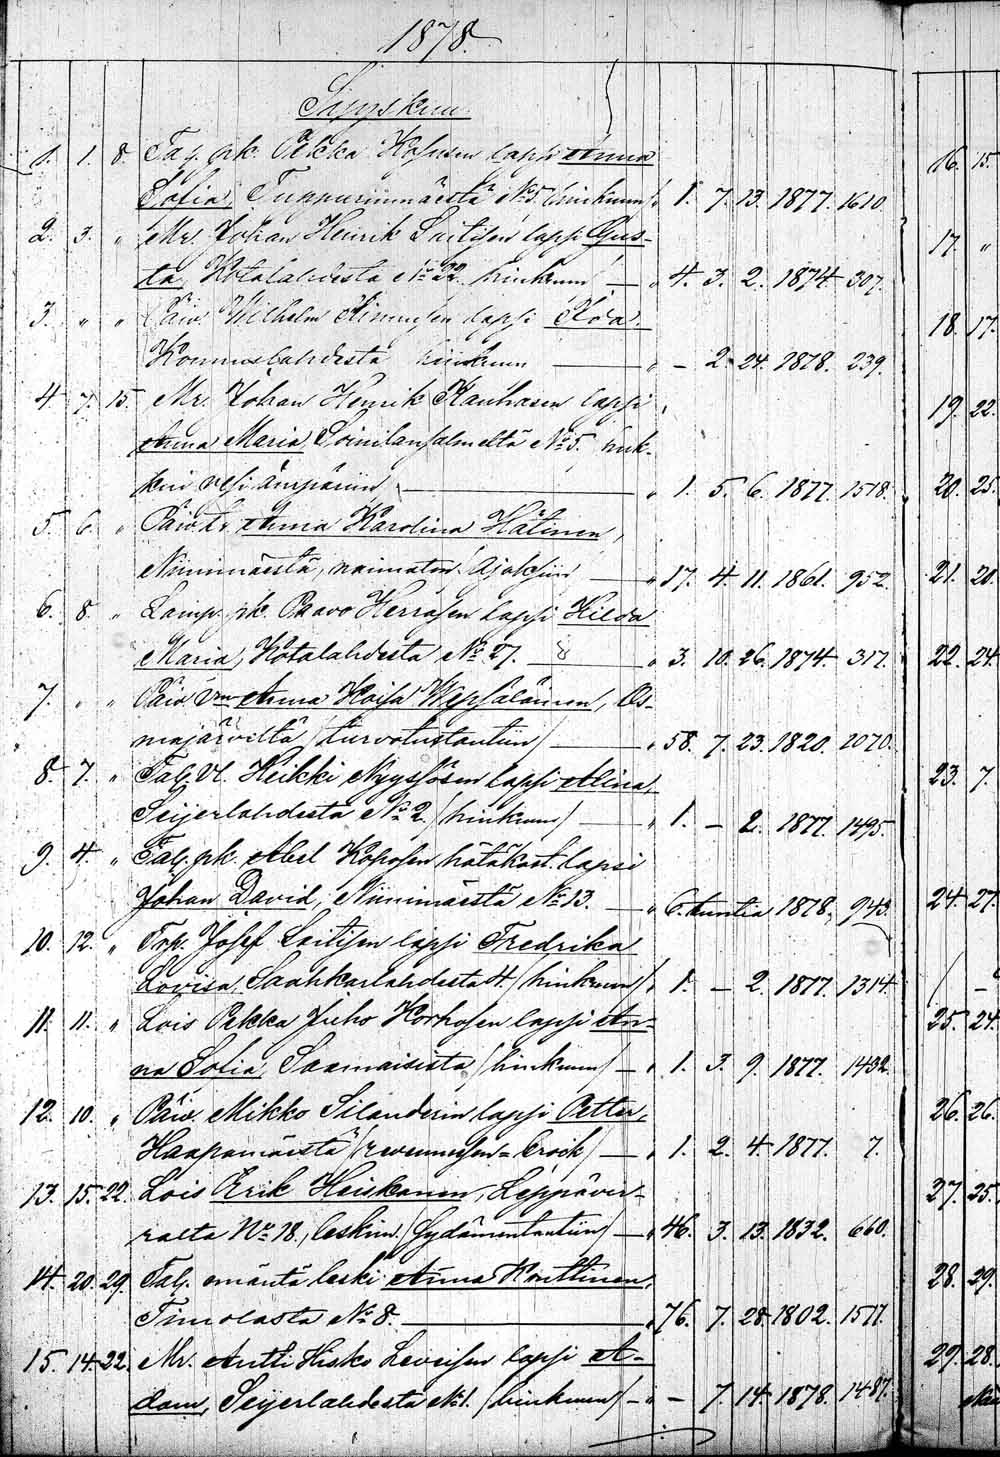 1878.
Syyskuu
1. 1. 8. Tal. pk. Pekka Kososen lapsi Anna
Sofia, Tuppurinmäestä No 5. (hinkuun) " 1. 7. 13. 1877. 1610.
2. 3. " Mr. Johan Henrik Laitisen lapsi Gus-
ta, Kotalahdesta No 22. hinkuun — " 4. 3. 2. 1874. 307.
3. " " Päiv. Wilhelm Kinnusen lapsi Ida,
Konnuslahdesta hinkuun — " - 2. 24. 1878. 239.
4. 7. 15. Mr. Johan Henrik Kauhasen lapsi
Anna Maria Soinilansalmelta No 5. huk-
kui vesi ämpäriin — " 1. 5. 6. 1877. 1518.
5. 6. " Päiv. tr. Anna Karolina Hätinen,
Niinimäestä, naimaton. Ajoksiin — " 17. 4. 11. 1861. 952.
6. 8. " Lamp. pk. Paavo Herrasen lapsi Hilda
Maria, Kotalahdesta No 27. — " 3. 10. 26. 1874. 317.
7. " " Päiv. vm Anna Kaisa Wepsäläinen, Os-
majärveltä (turvotustautiin) — " 58. 7. 23. 1820. 1070.
8. 7. " Tal. vl. Heikki Nyyssösen lapsi Alina,
Seijerlahdesta No 2. (hinkuun) — " 1. - 2. 1877. 1495.
9. 4. " Tal. pk. Abel Kososen hätäkast. lapsi
Johan David, Niinimäestä No 13. — " 6. tuntia 1878. 943.
10. 12. " Trp. Josef Laitisen lapsi Fredrika
Lovisa, Saahkarlahdesta 4. (hinkuun) " 1. - 2. 1877. 1314.
11. 11. " Lois Pekka Juho Korhosen lapsi An-
na Sofia, Saamaisista, (hinkuun) — " 1. 3. 9. 1877. 1432.
12. 10. " Päiv. Mikko Silanderin lapsi Petter,
Haapamäestä — " 1. 2. 4. 1877. 7.
13. 15. 22. Lois Erik Heiskanen, Leppävir-
ralta No 18., leskim. (sydämentautiin) — " 46. 3. 13. 1832. 660.
14. 20. 29. Tal. emäntä leski Anna Konttinen,
Timolasta No 8. — " 76. 7. 28. 1802. 1511.
15. 14. 22. Mr. Antti Hisko Leveisen lapsi A-
dam, Seijerlahdesta No 1. (hinkuun) — " - 7. 14. 1878. 1487.
16. 15.
17. "
18. 17.
19. 22.
20. 25.
21. 20.
22. 24.
23. 7.
24. 27.
25. 24.
26. 26.
27. 25.
28. 29.
29. 28.